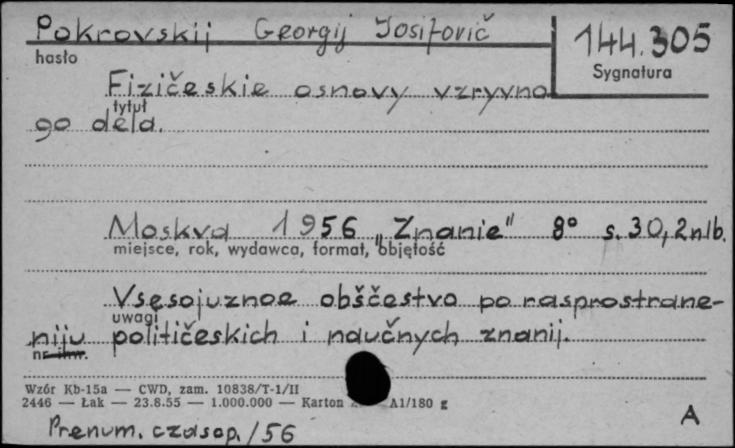 Pokrovskij Georgij Josifovič
hasło
144.305
Sygnatura
Fizičeskie osnovy vzryvno
tytuł
go dela.
Moskva 1956 "Znanie" 8° s. 30, 2nlb.
miejsce, rok, wydawca, format, objętość
Vsesojuznoe obščestvo po rasprostrane-
uwagi
niju političeskich i naučnych znanij.
nr inw.
Wzór Kb-15a — CWD, zam. 10838/T-1/II
2446 — Łak — 23.8.55 — 1.000.000 — Karton A1/180 g
Prenum. czasop./56
A